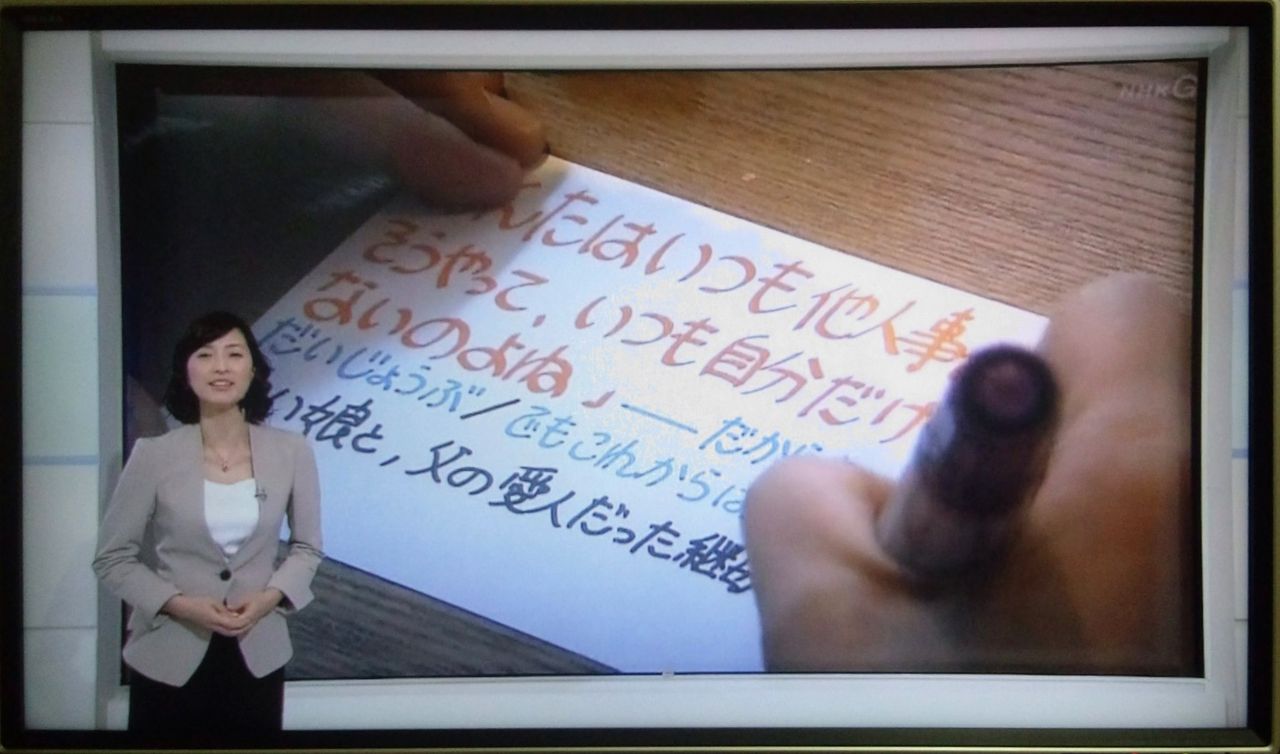 NHKG
んたはいつも他人事
そうやって,いつも自分だけ
ないのよね」——だから
だいじょうぶ/でもこれからは
い娘と,父の愛人だった継母